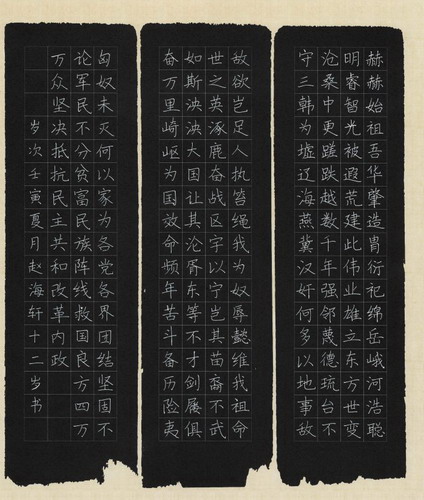 赫赫始祖吾华肇造胄衍祀绵岳峨河浩聪
明睿智光被遐荒建此伟业雄立东方世变
沧桑中更蹉跌越数千年强邻蔑德琉台不
守三韩为墟辽海燕冀汉奸何多以地事敌
敌欲岂足人执笞绳我为奴辱懿维我祖命
世之英涿鹿奋战区宇以宁岂其苗裔不武
如斯泱泱大国让其沦胥东等不才剑屦俱
奋万里崎岖为国效命频年苦斗备历险夷
匈奴未灭何以家为各党各界团结坚固不
论军民不分贫富民族阵线救国良方四万
万众坚决抵抗民主共和改革内政
岁次壬寅夏月赵海轩十二岁书